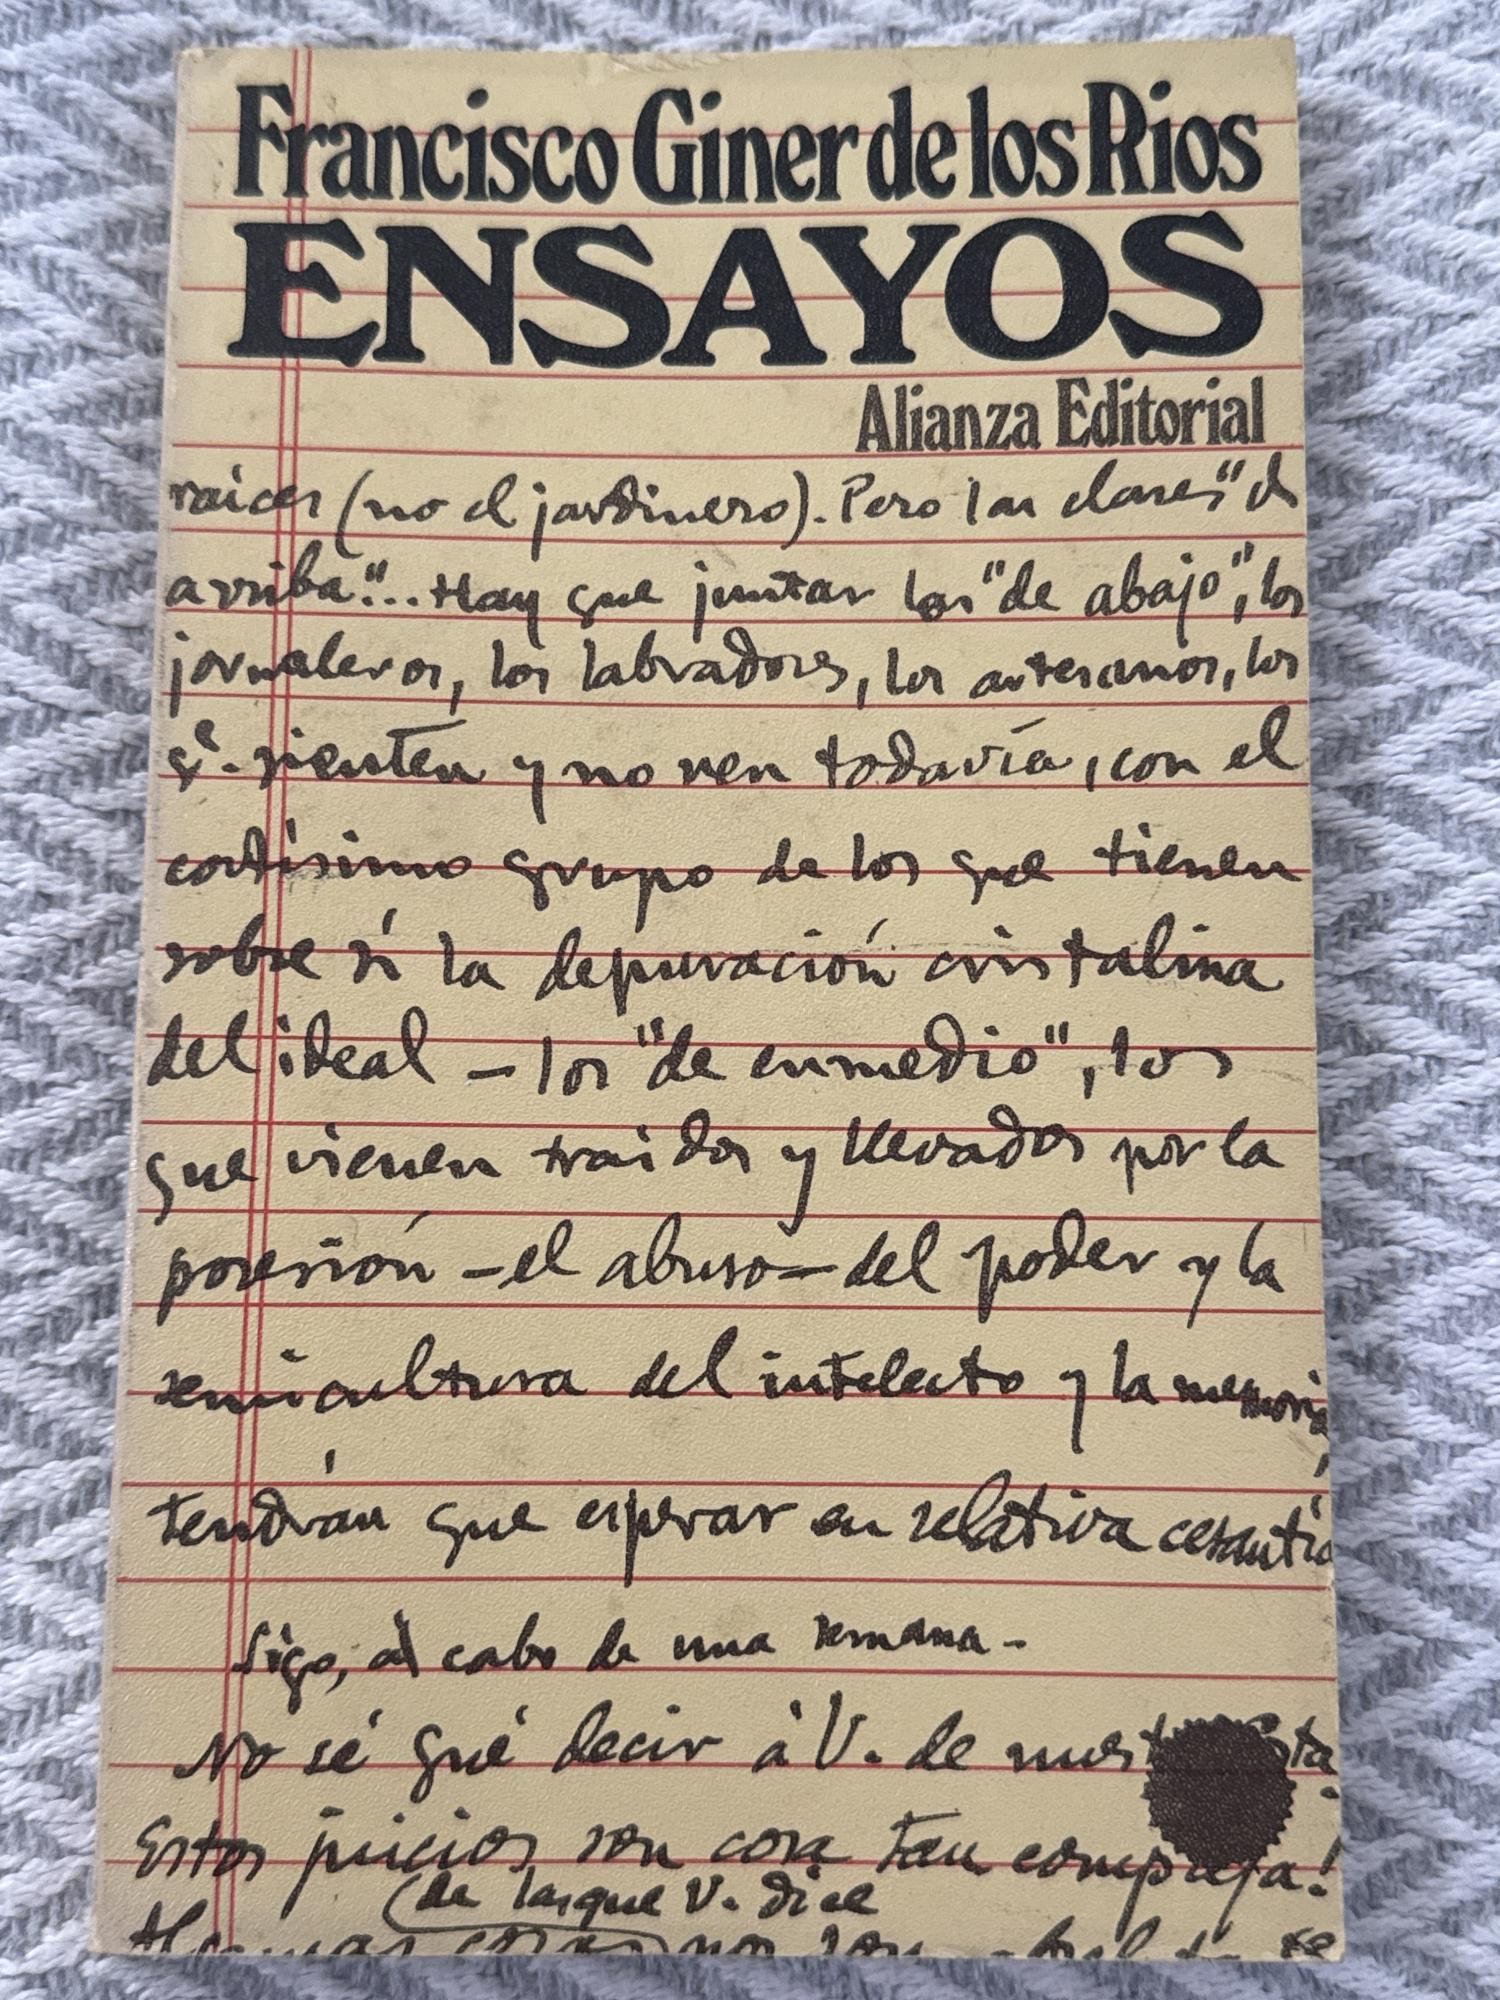 Francisco Giner de los Rios
ENSAYOS
Alianza Editorial
raíces (no el jardinero). Pero las clases "de
arriba"... Hay que juntar los "de abajo", los
jornaleros, los labradores, los artesanos, los
qe. sienten y no ven todavía, con el
cortísimo grupo de los que tienen
sobre sí la depuración cristalina
del ideal – los "de enmedio", los
que vienen traidos y llevados por la
posesión – el abuso – del poder y la
semicultura del intelecto y la memoria,
tendrán que esperar en relativa cesantía
Sigo, al cabo de una semana –
No sé qué decir à V. de
Estos juicios son cosa tan compleja!
(de las que V. dice
Algunas cosas nos son